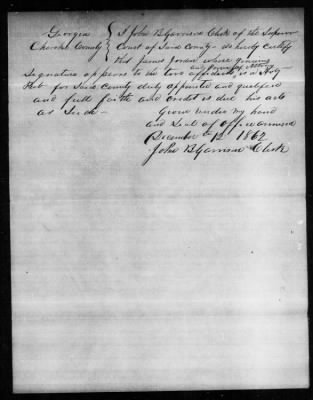 Georgia } I John B Garrison Clerk of the Superior
Cherokee County } Court of Said County do hereby certify
that James Jordan whose genuine
and Power of Attorney
Signature appears to the two affidavits, is a Noty
Pub for Said County duly appointed and qualified
and full faith and credit is due his acts
as Such —
Given under my hand
and Seal of Office annexed
December 12th 1862
John B Garrison Clerk